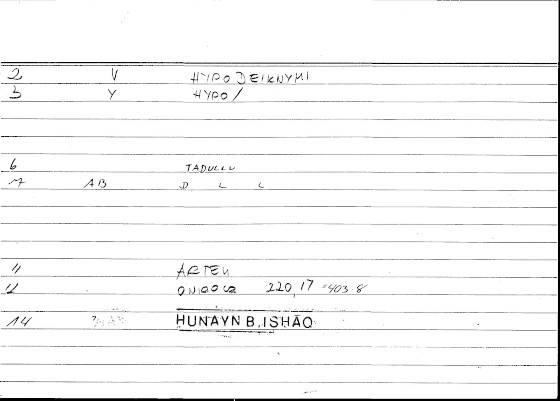 2 V HYPODEIKNYMI
3 Y HYPO/
6 TADULLU
7 AB D L L
11 ARTEM
12 220,17 403 8
14 HUNAYN B. ISHĀQ